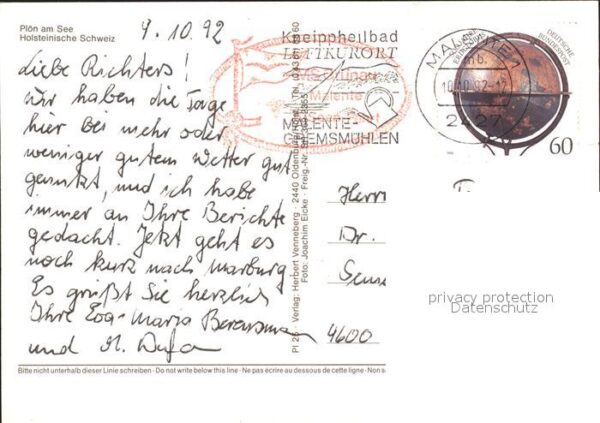 Plön am See
Holsteinische Schweiz
9.10.92
Liebe Richters!
wir haben die Tage
hier bei mehr oder
weniger gutem Wetter gut
genutzt, und ich habe
immer an Ihre Berichte
gedacht. Jetzt geht es
noch kurz nach Marburg
Es grüßt Sie herzlich
Ihre Eva-Maria
und
Kneippheilbad
LUFTKURORT
MALENTE-
GREMSMÜHLEN
MS Grünau
Malente
MALENTE 1
mb
10.10.92-12
2427
DEUTSCHE
BUNDESPOST
60
Pl 26 · Verlag: Herbert Venneberg · 2440 Oldenburg/Holst.
Foto: Joachim Eicke · Freig.-Nr.
Herrn
Dr.
4600
privacy protection
Datenschutz
Bitte nicht unterhalb dieser Linie schreiben · Do not write below this line · Ne pas écrire au dessous de cette ligne · Non s